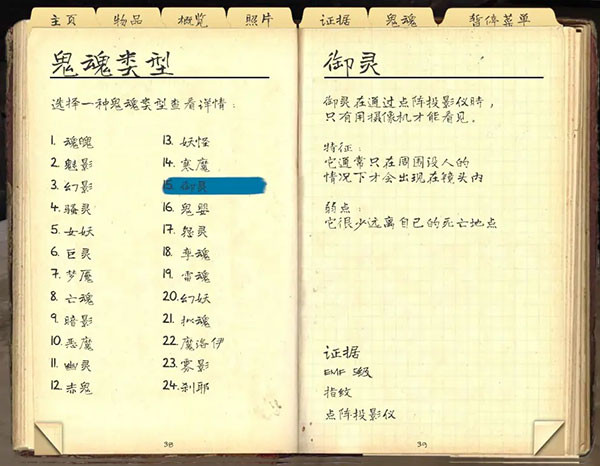 主页
物品
概览
照片
证据
鬼魂
暂停菜单
鬼魂类型
选择一种鬼魂类型查看详情：
1. 魂魄
2. 魅影
3. 幻影
4. 骚灵
5. 女妖
6. 巨灵
7. 梦魇
8. 亡魂
9. 暗影
10. 恶魔
11. 幽灵
12. 赤鬼
13. 妖怪
14. 寒魔
15. 御灵
16. 鬼婴
17. 怨灵
18. 孪魂
19. 雷魂
20. 幻妖
21. 拟魂
22. 魔洛伊
23. 雾影
24. 刹耶
38
御灵
御灵在通过点阵投影仪时，
只有用摄像机才能看见。
特征：
它通常只在周围没人的
情况下才会出现在镜头内
弱点：
它很少远离自己的死亡地点
证据
EMF 5级
指纹
点阵投影仪
39